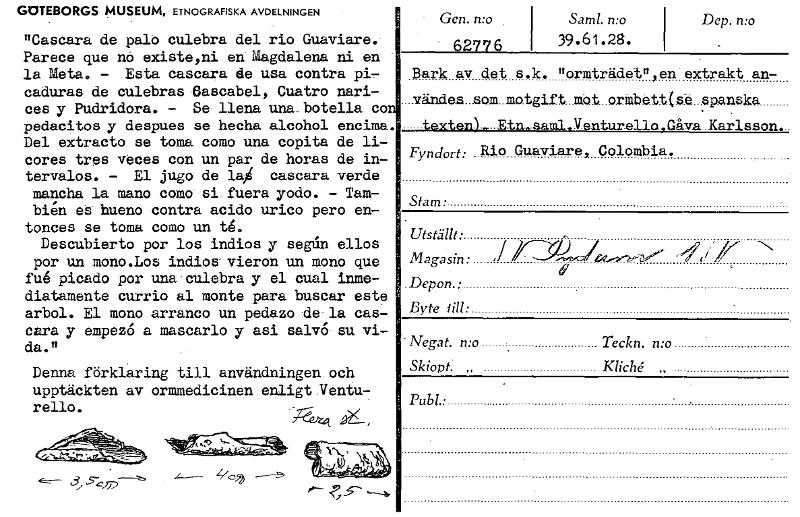 GÖTEBORGS MUSEUM, ETNOGRAFISKA AVDELNINGEN
"Cascara de palo culebra del rio Guaviare.
Parece que no existe,ni en Magdalena ni en
la Meta. - Esta cascara de usa contra pi-
caduras de culebras Cascabel, Cuatro nari-
ces y Pudridora. - Se llena una botella con
pedacitos y despues se hecha alcohol encima.
Del extracto se toma como una copita de li-
cores tres veces con un par de horas de in-
tervalos. - El jugo de la cascara verde
mancha la mano como si fuera yodo. - Tam-
bién es bueno contra acido urico pero en-
tonces se toma como un té.
Descubierto por los indios y según ellos
por un mono.Los indios vieron un mono que
fué picado por una culebra y el cual inme-
diatamente currio al monte para buscar este
arbol. El mono arranco un pedazo de la cas-
cara y empezó a mascarlo y asi salvó su vi-
da."
Denna förklaring till användningen och
upptäckten av ormmedicinen enligt Ventu-
rello.
Flera st.
3,5 cm
4 cm
2,5
Gen. n:o
62776
Saml. n:o
39.61.28.
Dep. n:o
Bark av det s.k. "ormträdet",en extrakt an-
vändes som motgift mot ormbett(se spanska
texten). Etn.saml.Venturello.Gåva Karlsson.
Fyndort: Rio Guaviare, Colombia.
Stam:
Utställt:
Magasin:
Depon.:
Byte till:
Negat. n:o
Teckn. n:o
Skiopt. „
Kliché „
Publ.: